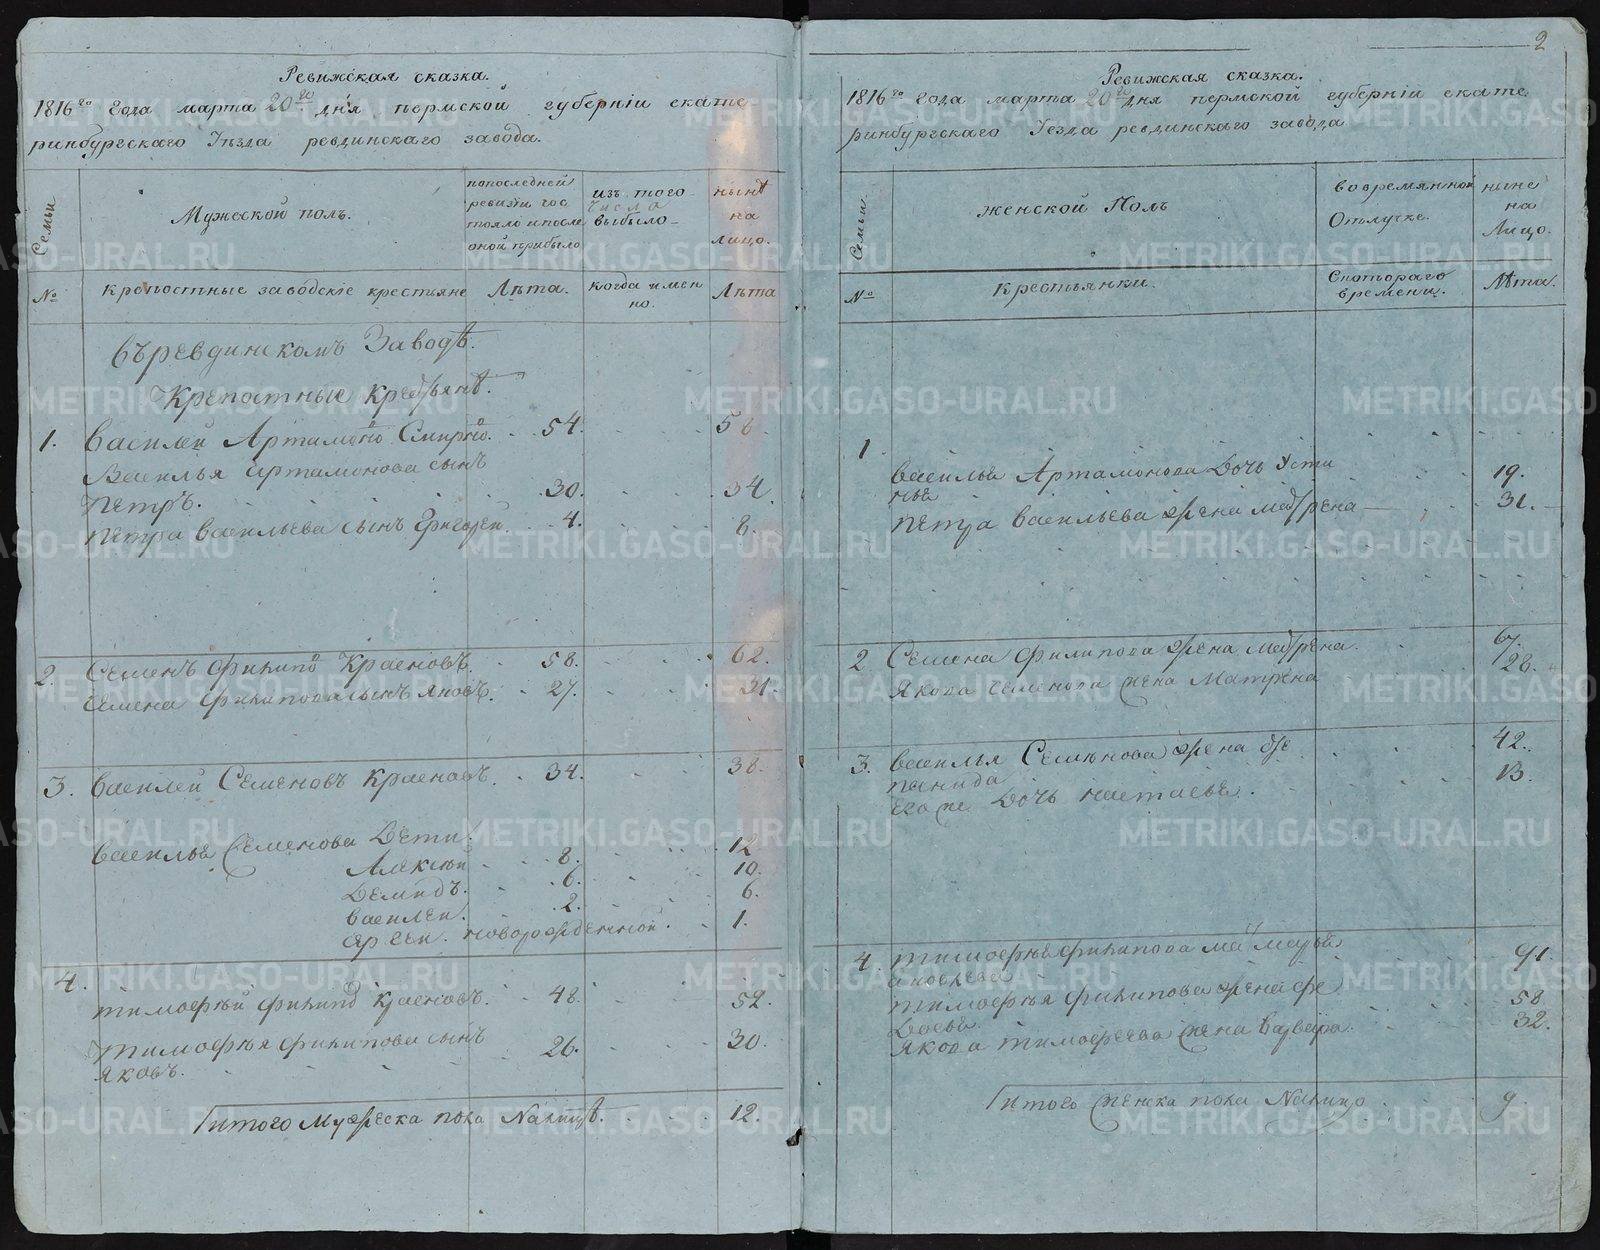 Ревижская сказка.
1816го Года марта 20го дня пермской губернiи екате
ринбургскаго Уѣзда ревдинскаго завода.
Семьи
Мужеской полъ.
попоследней
ревизiи сос
тояло ипосле
оной прибыло
изъ того
числа
выбыло
нынѣ
на
лицо.
№
крепостные заводскiе крестьяне
Лѣта.
когда имен
но.
Лѣта
въревдинскомъ Заводѣ.
Крепостные крестьянѣ.
1. Василей Артамоно Смирно. 54. 58
Василья Артамонова сынъ
Петръ. 30. 34.
Петра Васильева сынъ Григорей. 4. 8.
2. Семенъ Филипо Красновъ. 58. 62.
Семена Филипова сынъ Яковъ. 27. 31.
3. Василей Семеновъ Красновъ. 34. 38.
Василья Семенова Дети
Алексей 8. 12.
Демидъ. 6. 10.
Василей. 2. 6.
новорожденной. 1.
4. Тимофѣй Филипо Красновъ. 48. 52.
Тимофѣя Филипова сынъ
Яковъ. 26. 30.
Итого Мужеска пола Налицѣ. 12.
2
Ревижская сказка.
1816го Года марта 20го дня пермской губернiи екате
ринбургскаго Уезда ревдинскаго завода
Семьи
женской Полъ
вовремянной
Отлучке.
ныне
на
Лицо.
№
крестьянки.
Скотораго
времени.
Лѣта.
1
Василья Артамонова Дочь Усти
нья 19.
Петра Васильева жена матрена 31.
2. Семена Филипова жена матрена. 67.
Якова Семенова жена Матрена 28.
3. Василья Семѣнова жена Сте
панида 42.
Егоже Дочь настасья. 13.
4. Тимофѣя Филипова ма Марья
Яковлева 91.
Тимофѣя Филипова жена Фе
досья 58.
Якова Тимофеева жена Варвара. 32.
Итого женска пола Налицо 9
METRIKI.GASO-URAL.RU